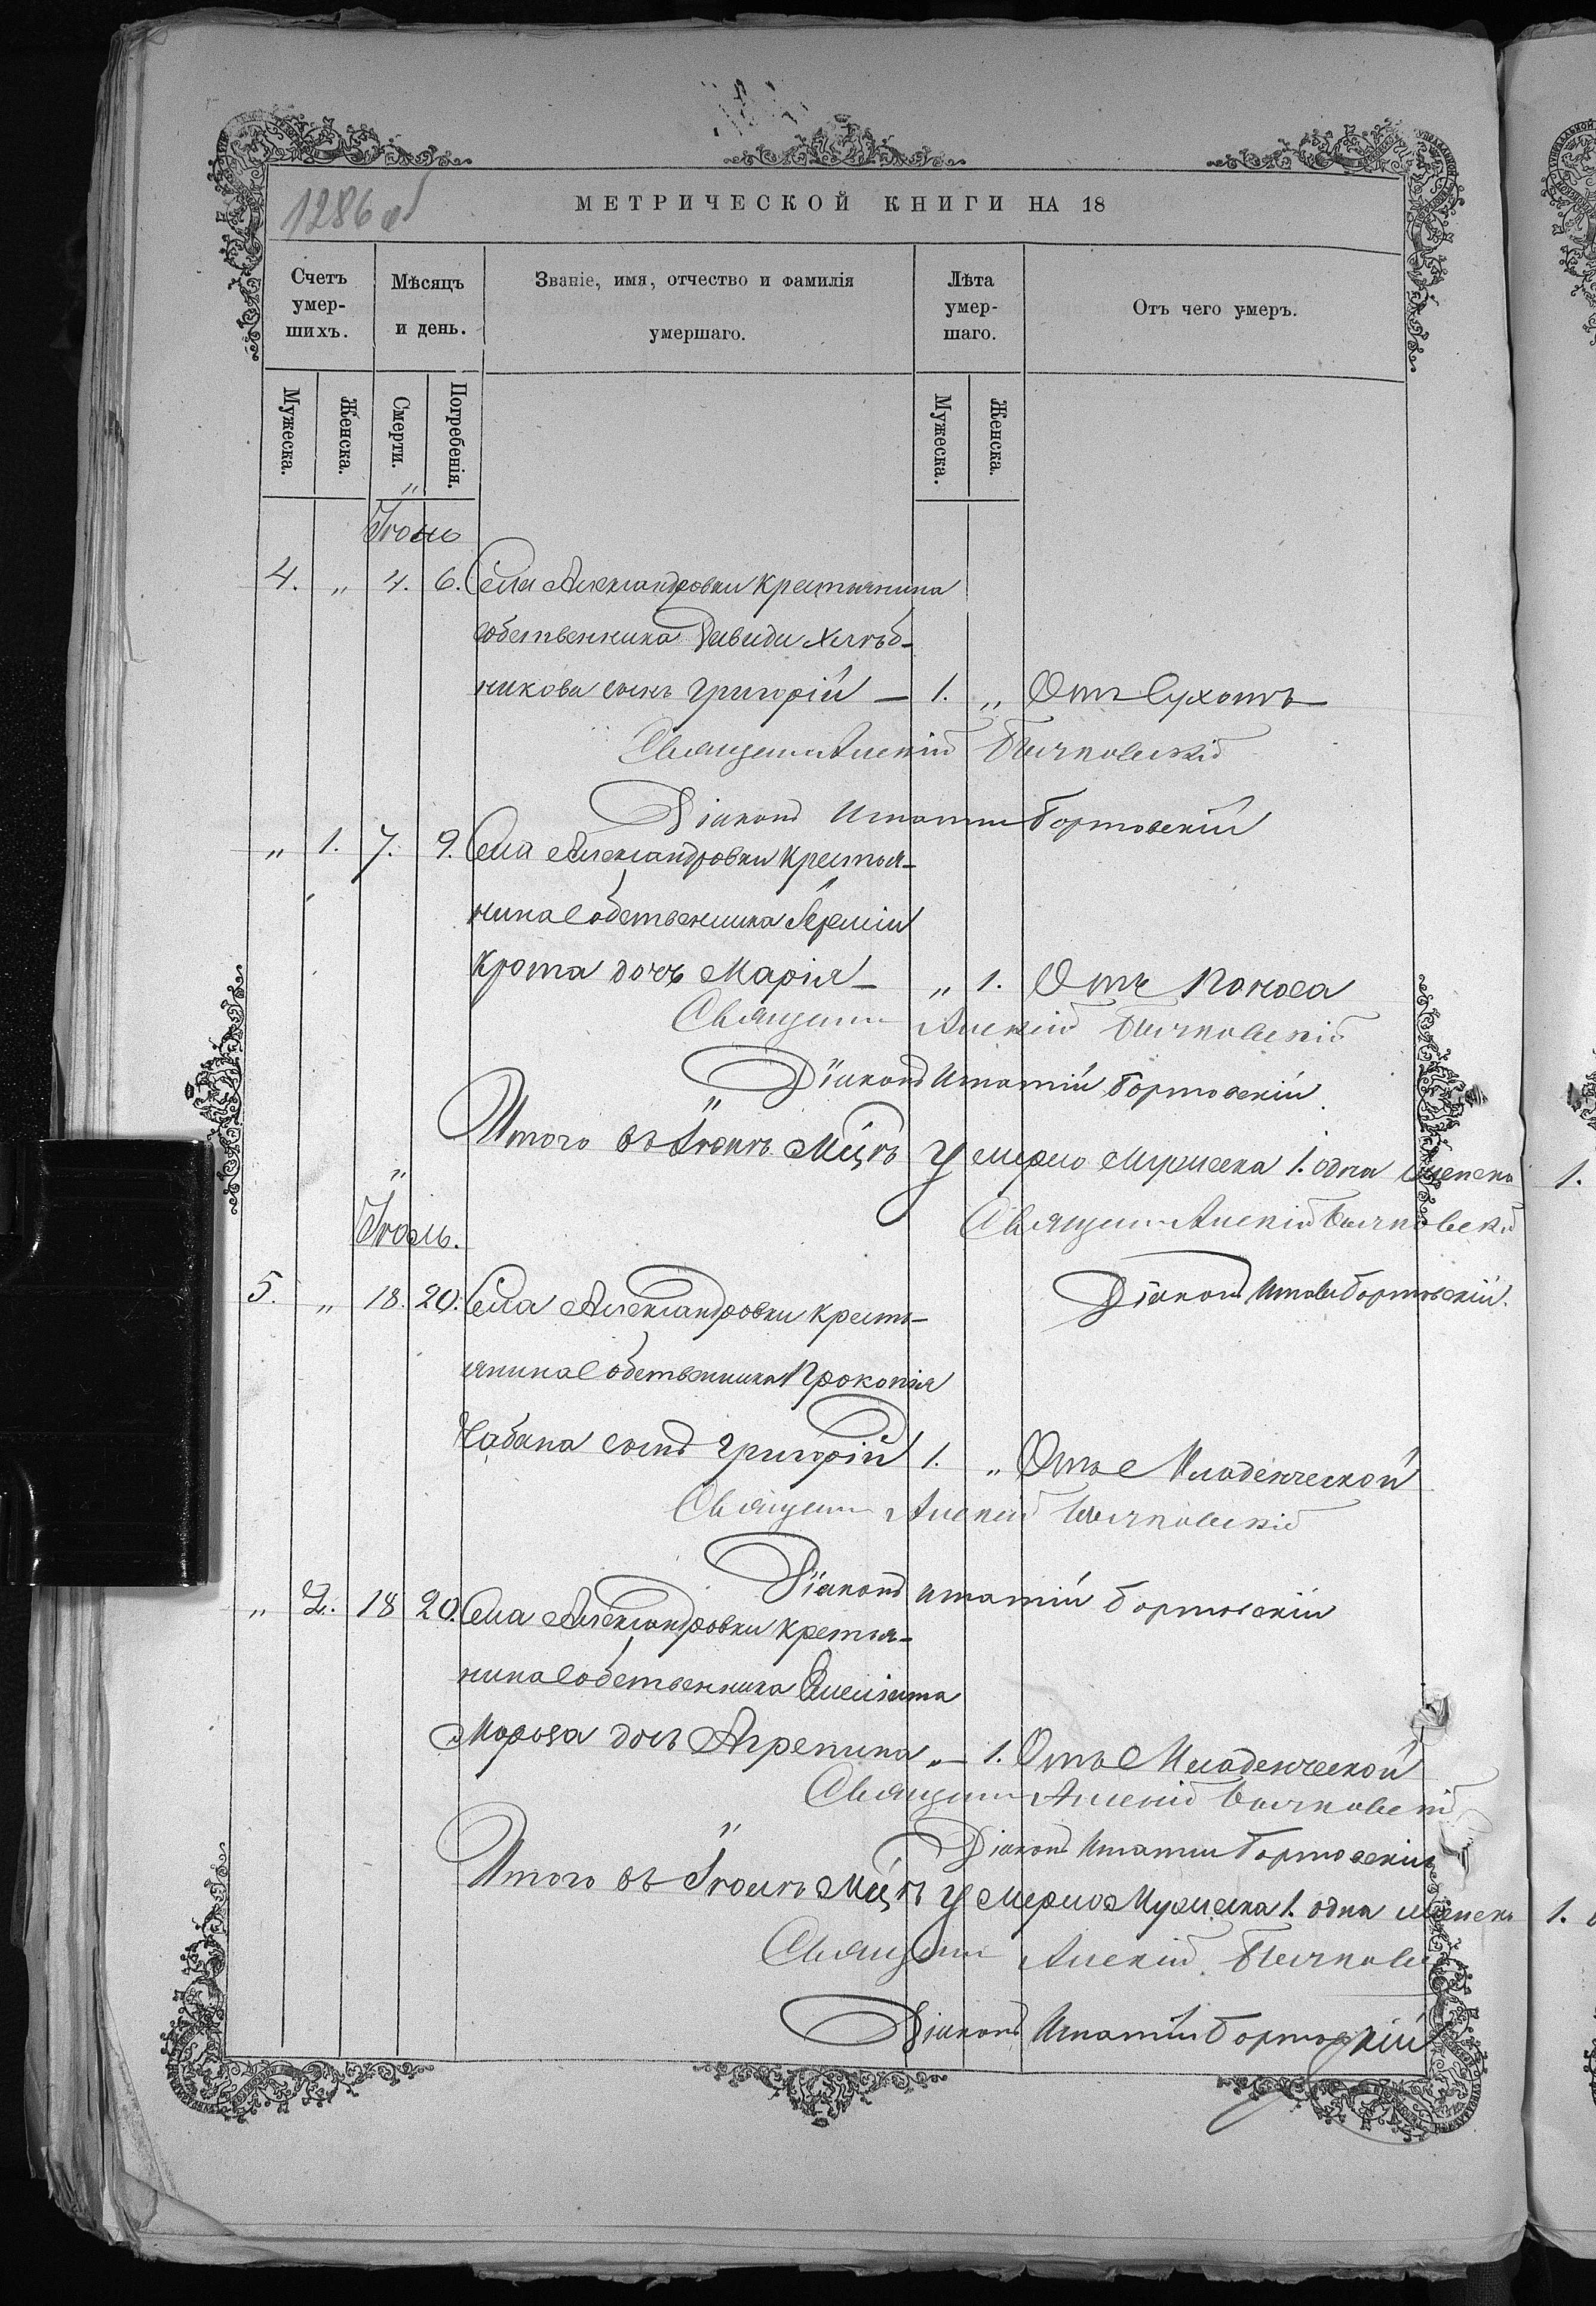 1286 об
МЕТРИЧЕСКОЙ КНИГИ НА 18
Счетъ умер-шихъ.
Мѣсяцъ и день.
Званіе, имя, отчество и фамилія умершаго.
Лѣта умер-шаго.
Отъ чего умеръ.
Мужеска.
Женска.
Смерти.
Погребенія.
Мужеска.
Женска.
Іюнь
4. „ 4. 6. Села Александровки крестьянина
собственника Давида Хлѣб-
никова сынъ Григорій — 1. „ Отъ Сухотъ
Священ Алексій
Діаконъ Игнатій Бортовскій
„ 1. 7. 9. Села Александровки крестья-
нина Собственника Іереміи
Крота дочь Марія — „ 1. Отъ Поноса
Священ Алексій
Діаконъ Игнатій Бортовскій
Итого въ Іюнѣ Мцѣ Умерло Мужеска 1. одна женска 1.
Священ Алексій
Іюль.
Діаконъ Игнатій Бортовскій.
5. „ 18. 20. Села Александровки кресть-
янина Собственника Прокопія
Чабана сынъ Григорій 1. „ Отъ Младенческой
Священ Алексій
Діаконъ Игнатій Бортовскій
„ 2. 18 20. Села Александровки крестья-
нина Собственника
Мороза дочь Агрепина „ — 1. Отъ Младенческой
Священ Алексій
Діаконъ Игнатій Бортовскій
Итого въ Іюлѣ Мцѣ Умерло Мужеска 1. одна женска 1.
Священ Алексій
Діаконъ Игнатій Бортовскій